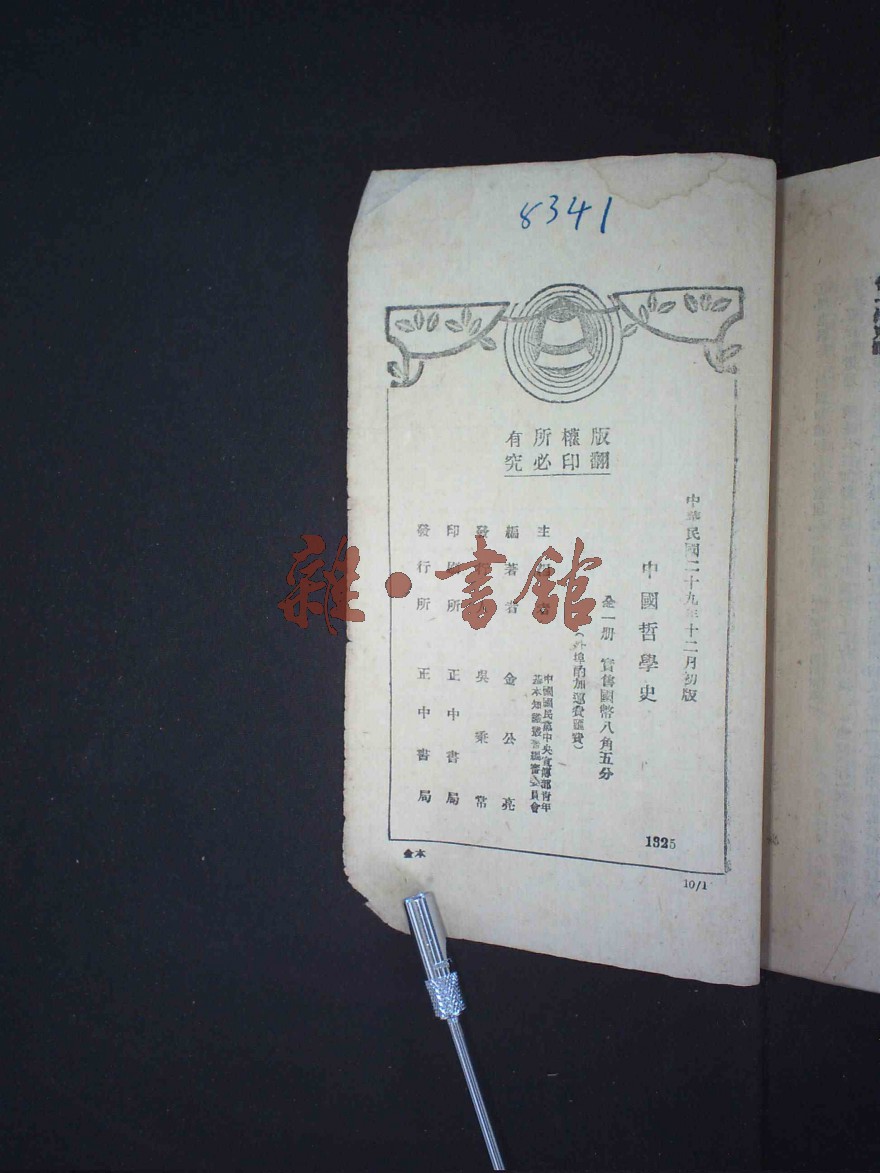 8341
版權所有
翻印必究
中華民國二十九年十二月初版
中國哲學史
全一冊 實售國幣八角五分
(外埠酌加運費匯費)
主編者 中國國民黨中央宣傳部青年基本知識叢書編審委員會
編著者 金公亮
發行人 吳秉常
印刷所 正中書局
發行所 正中書局
1325
金本
10/1
雜·書館